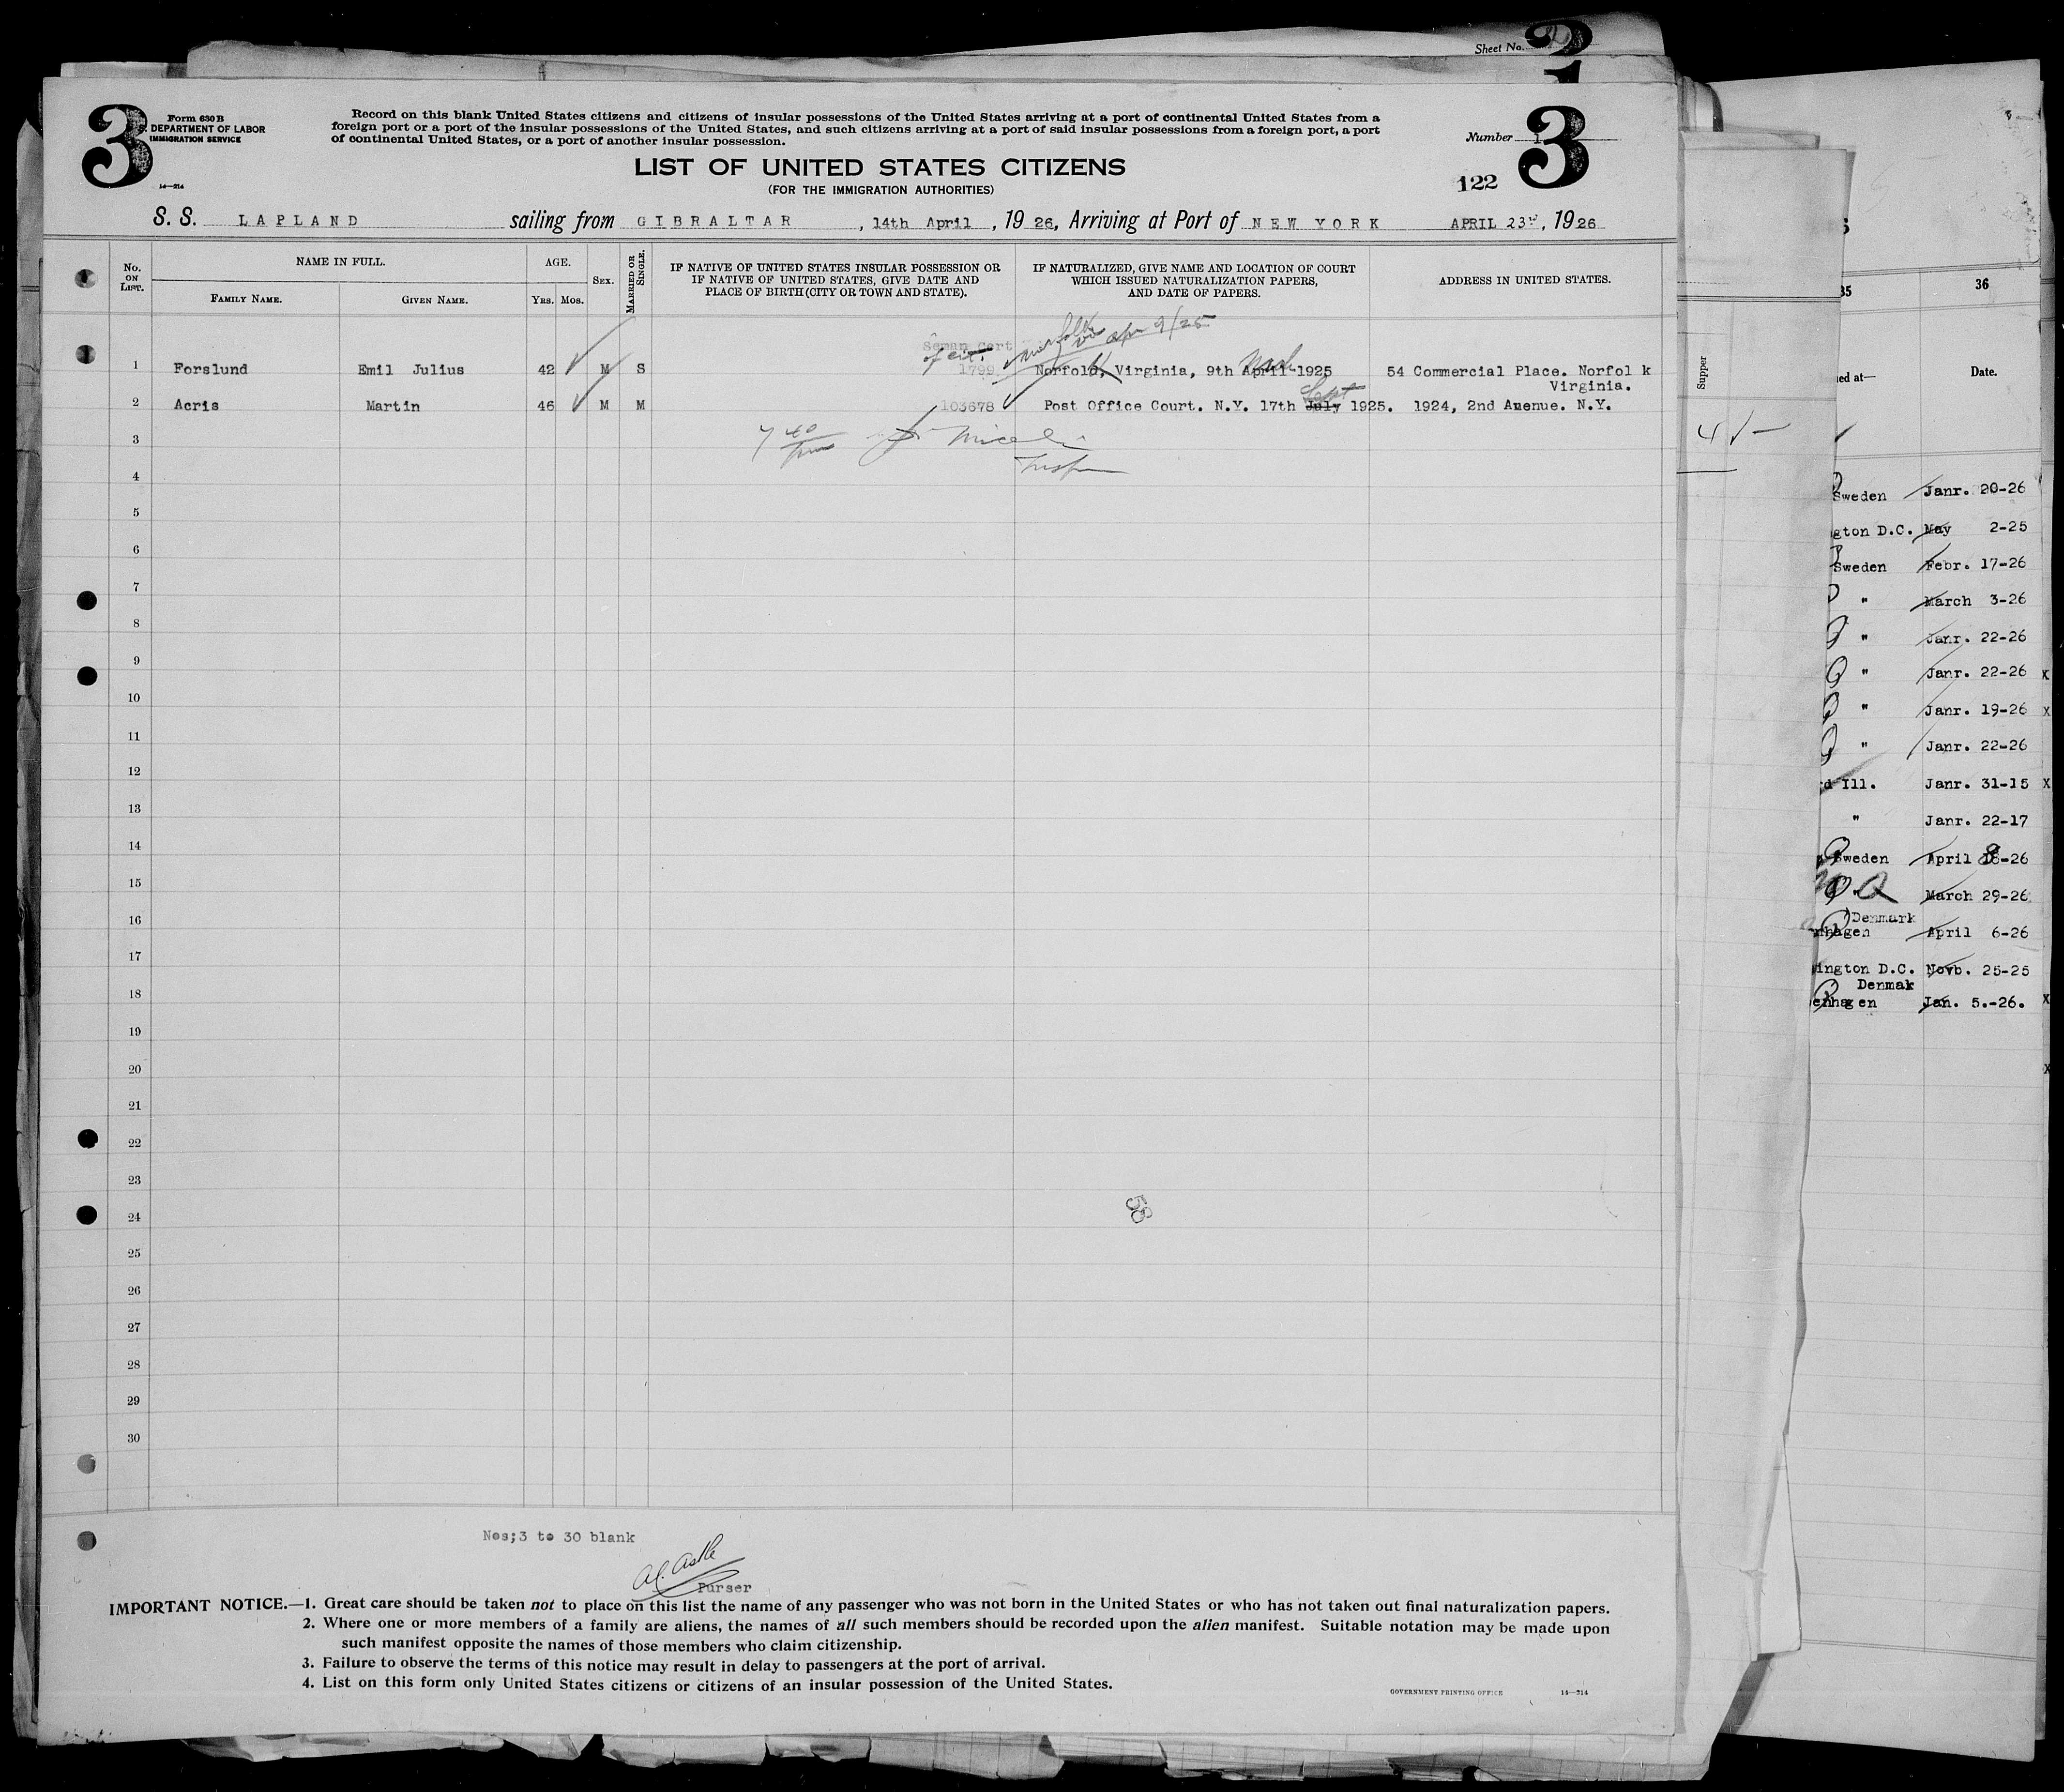 Sheet No.
3
3
Form 630 B
DEPARTMENT OF LABOR
IMMIGRATION SERVICE
14—214
Record on this blank United States citizens and citizens of insular possessions of the United States arriving at a port of continental United States from a
foreign port or a port of the insular possessions of the United States, and such citizens arriving at a port of said insular possessions from a foreign port, a port
of continental United States, or a port of another insular possession.
Number 1
LIST OF UNITED STATES CITIZENS
(FOR THE IMMIGRATION AUTHORITIES)
122
S. S. LAPLAND sailing from GIBRALTAR, 14th April, 1926, Arriving at Port of NEW YORK APRIL 23rd, 1926
No. ON LIST.
NAME IN FULL.
FAMILY NAME.
GIVEN NAME.
AGE.
Yrs. Mos.
SEX.
MARRIED OR SINGLE.
IF NATIVE OF UNITED STATES INSULAR POSSESSION OR
IF NATIVE OF UNITED STATES, GIVE DATE AND
PLACE OF BIRTH (CITY OR TOWN AND STATE).
IF NATURALIZED, GIVE NAME AND LOCATION OF COURT
WHICH ISSUED NATURALIZATION PAPERS,
AND DATE OF PAPERS.
ADDRESS IN UNITED STATES.
Seman Cert
of cit.
Norfolk Va Apr 9/25
1 Forslund Emil Julius 42 M S 1799 Norfold, Virginia, 9th April 1925 54 Commercial Place. Norfol k
Virginia.
Sept
2 Acris Martin 46 M M 103678 Post Office Court. N.Y. 17th July 1925. 1924, 2nd Auenue. N.Y.
3
4
5
6
7
8
9
10
11
12
13
14
15
16
17
18
19
20
21
22
23
24
25
26
27
28
29
30
58
Nos;3 to 30 blank
Purser
IMPORTANT NOTICE.—1. Great care should be taken not to place on this list the name of any passenger who was not born in the United States or who has not taken out final naturalization papers.
2. Where one or more members of a family are aliens, the names of all such members should be recorded upon the alien manifest. Suitable notation may be made upon
such manifest opposite the names of those members who claim citizenship.
3. Failure to observe the terms of this notice may result in delay to passengers at the port of arrival.
4. List on this form only United States citizens or citizens of an insular possession of the United States.
GOVERNMENT PRINTING OFFICE 14—214
Supper
35 36
ed at— Date.
Sweden Janr. 20-26
gton D.C. May 2-25
Sweden Febr. 17-26
" March 3-26
" Janr. 22-26
" Janr. 22-26 x
" Janr. 19-26 x
" Janr. 22-26
rd Ill. Janr. 31-15 x
" Janr. 22-17
Sweden April 18-26
" March 29-26
Denmark
nhagen April 6-26
ington D.C. Novb. 25-25
Denmak
enhagen Jan. 5.-26. x
x